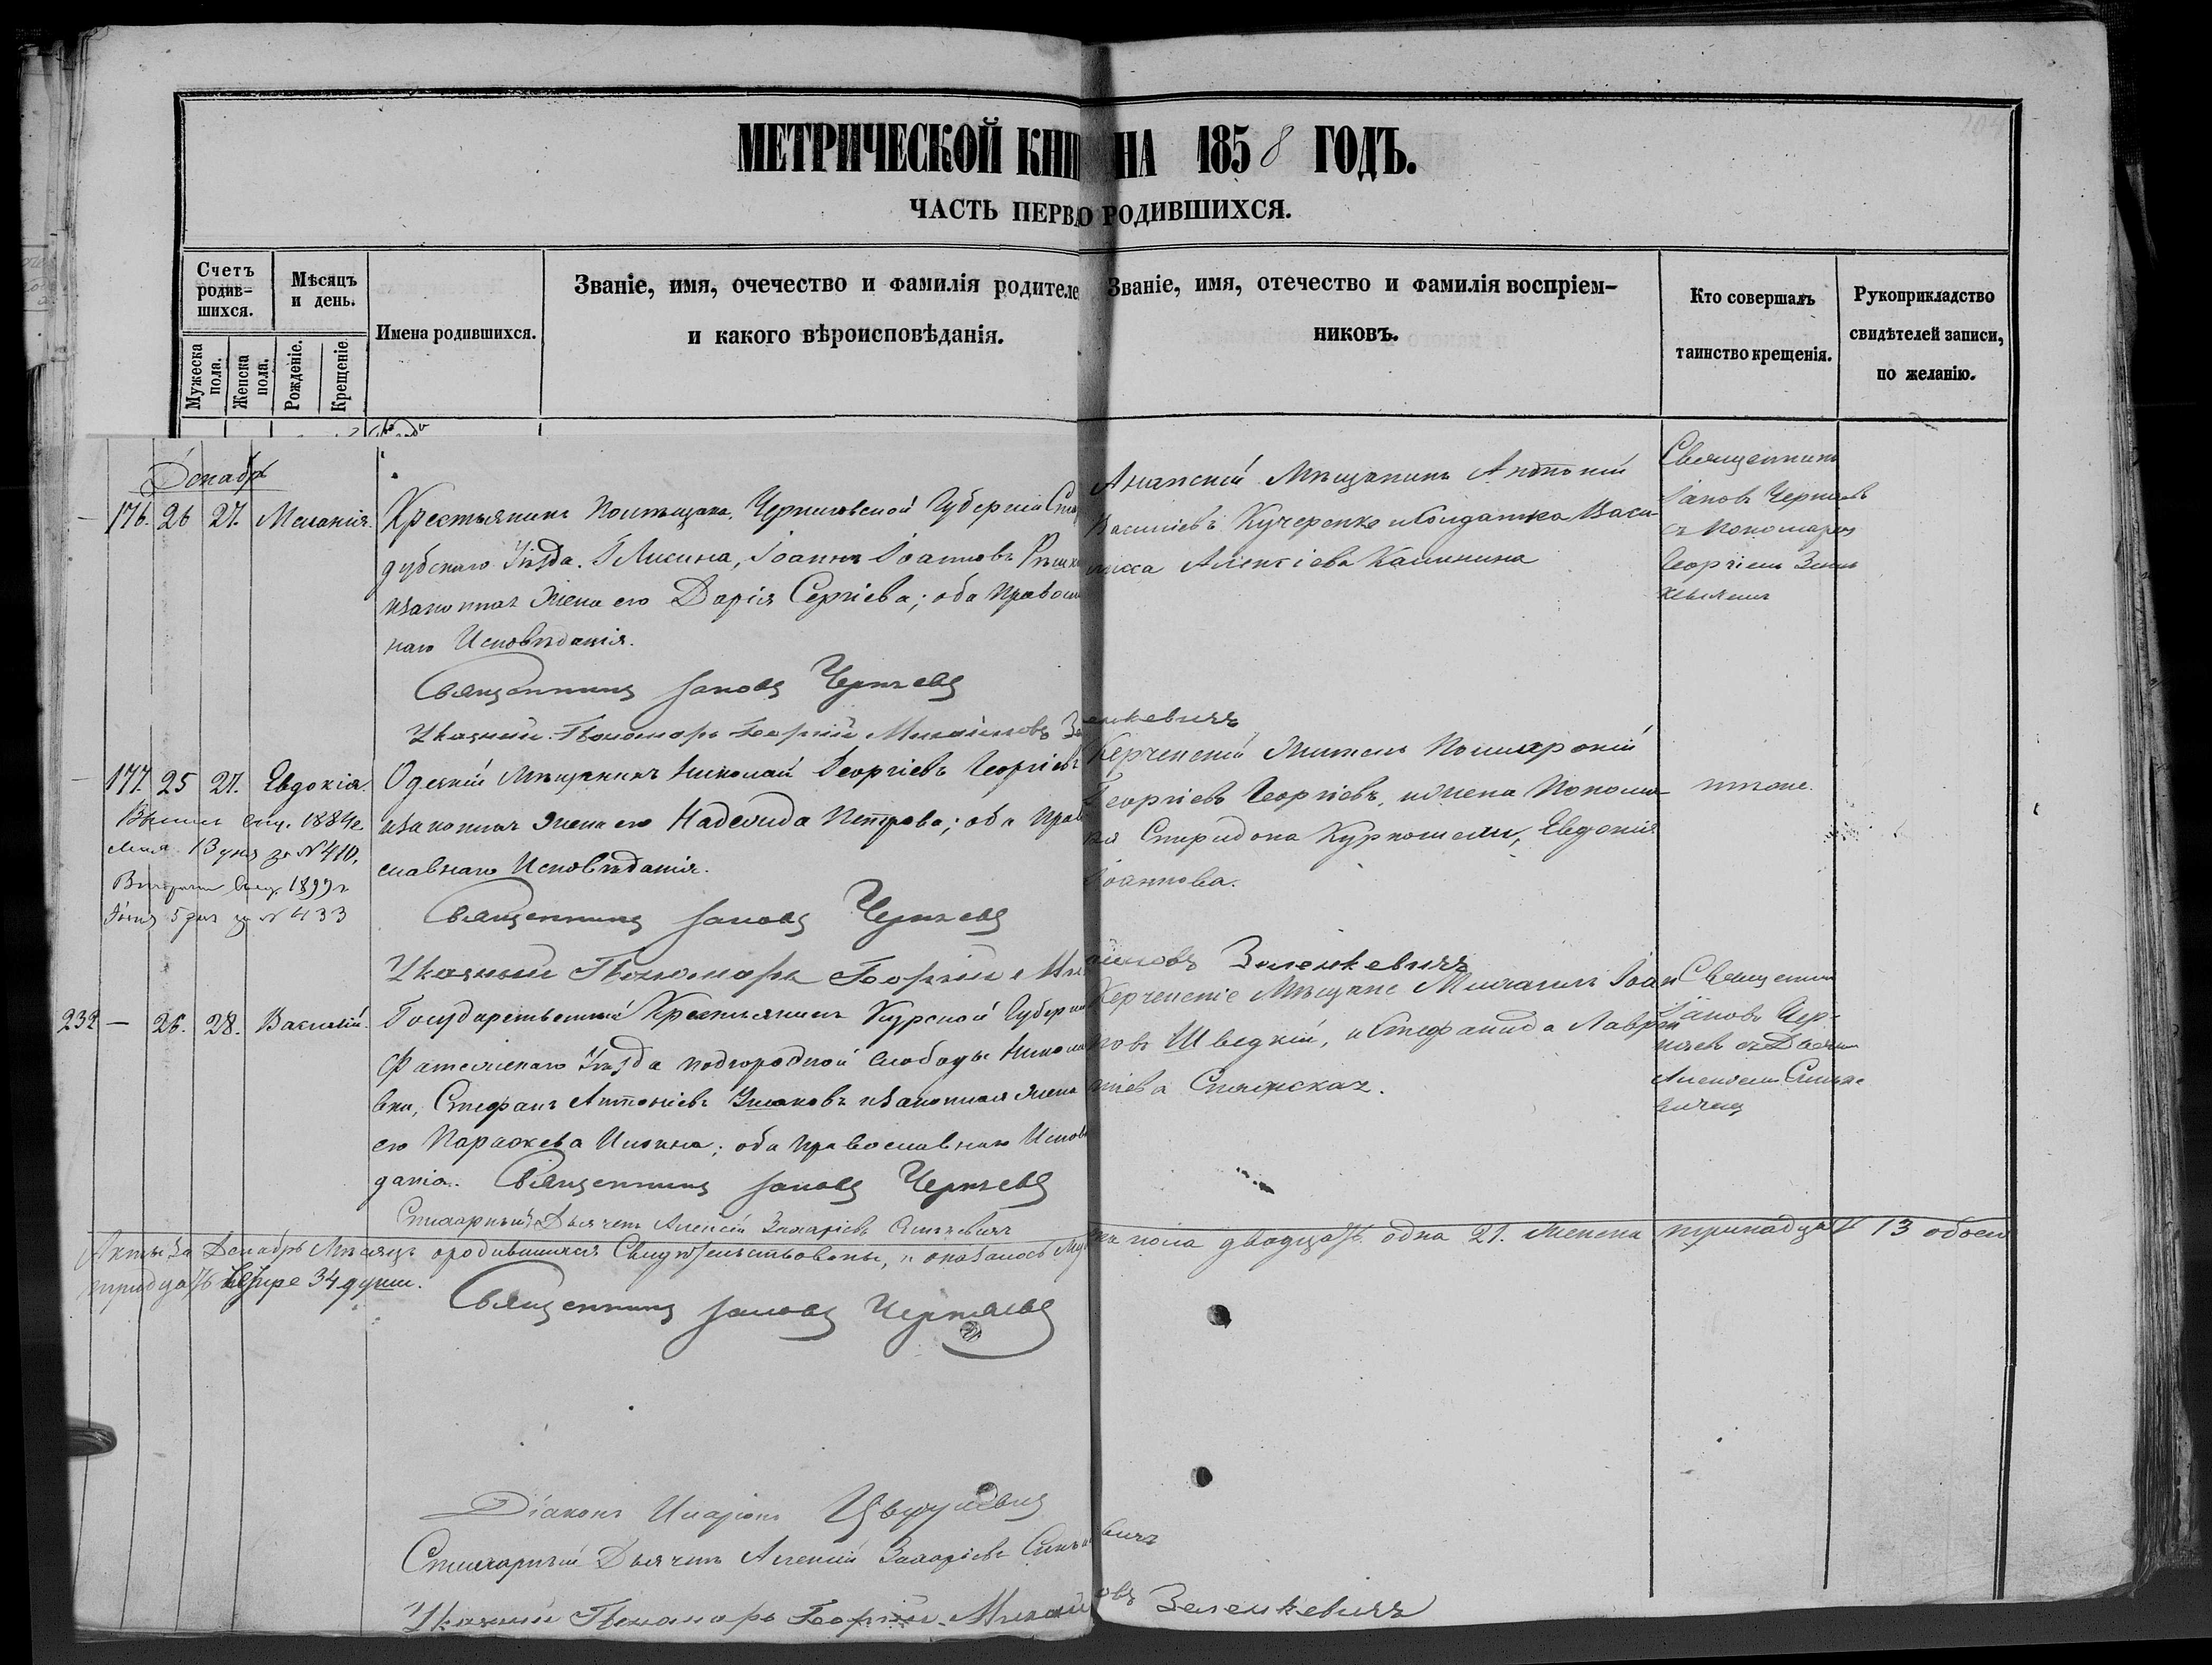 МЕТРИЧЕСКОЙ КНИ НА 1858 ГОДЪ.
ЧАСТЬ ПЕРВ О РОДИВШИХСЯ.
Счетъ родив- шихся.
Мѣсяцъ и день.
Мужеска пола.
Женска пола.
Рожденіе.
Крещеніе.
Имена родившихся.
Званіе, имя, очечество и фамилія родителе
и какого вѣроисповѣданія.
Званіе, имя, отечество и фамилія воспріем-
никовъ.
Кто совершалъ
таинство крещенія.
Рукоприкладство
свидѣтелей записи,
по желанію.
Декабрь
176. 26 27. Меланія.
Крестьянинъ Помѣщика, Черниговской Губерніи Ста
дубскаго Уѣзда. Іоаннъ Іоанновъ
изаконная жена его Дарія Сергіева; оба Правосл
наго Исповѣданія.
Священникъ Іаковъ Черняевъ
Указный Пономарь Георгій Михайловъ Зеленкевичъ
Анапскій Мѣщанинъ Антоній
Василіевъ Кучеренко и Солдатка Васи-
лисса Алексіева Калинина
Священникъ
Іаковъ Черняевъ
съ Пономаремъ
Георгіемъ Зелен
кевичемъ
177. 25 27. Евдокія.
Одесскій Мѣщанинъ Николай Георгіевъ Георгіевъ
изаконная жена его Надежда Петрова; оба Прав
славнаго Исповѣданія.
Священникъ Іаковъ Черняевъ
Указный Пономарь Георгій Михайловъ Зеленкевичъ
1884
13 дня за №410.
5 дня за №433
Керченскій Житель
Георгіевъ Георгіевъ, ижена
Спиридона Евдокія
Іоаннова.
тоже.
232 — 26. 28. Василій.
Государственный Крестьянинъ Курской Губерніи
Фатежскаго Уѣзда подгородной слободы Никола
евки, Стефанъ Антоніевъ изаконная жена
его Параскева Ильина; оба православнаго Исповѣ
данія. Священникъ Іаковъ Черняевъ
Стихарный Дьячекъ Алексій Захаріевъ Синькевичъ
Керченскіе Мѣщане Михаилъ Іоан
новъ Шведкій, и Стефанида Лаврен
тіева
Священникъ
Іаковъ Чер-
няевъ съ Дьячк
Алексіемъ Синьке
вичемъ
Акты за Декабрь Мѣсяцъ ородившихся Свидѣтельствованы, и оказалось Му ска пола двадцать одна 21. женска тринадцать 13 обоего
тридцать четыре 34 души.
Священникъ Іаковъ Черняевъ
Діаконъ Иларіонъ
Стихарный Дьячекъ Алексій Захаріевъ Синькевичъ
Указный Пономарь Георгій Михайловъ Зеленкевичъ